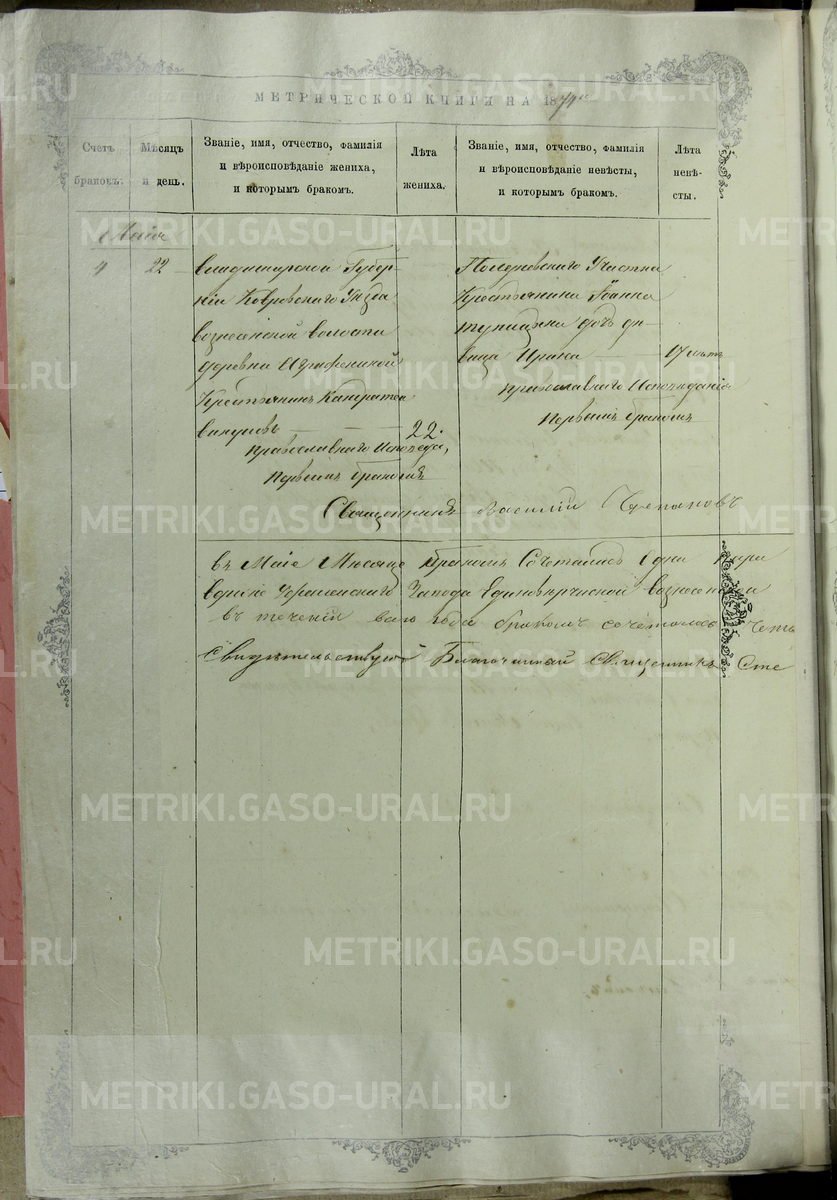 МЕТРИЧЕСКОЙ КНИГИ НА 1874
Счетъ браковъ.
Мѣсяцъ и день.
Званіе, имя, отчество, фамилія и вѣроисповѣданіе жениха, и которымъ бракомъ.
Лѣта жениха.
Званіе, имя, отчество, фамилія и вѣроисповѣданіе невѣсты, и которымъ бракомъ.
Лѣта невѣсты.
Маія
4 22
Владимирской Губер-
ніи Ковровскаго Уѣзда
вознесенской волости
деревни
Крестьянинъ
22.
православнаго Исповеда,
первымъ бракомъ
Участка
Крестьянина Іоанна
дочь дѣ-
вица Ирина 17 лѣтъ
православнаго Исповеданія
первымъ бракомъ
Священникъ Василій
въ Маіе Мѣсяце бракомъ Сочеталась Одна пара
Завода Единоверческой вознесен
въ теченіи всего года бракомъ сочеталось Четы
Свидѣтельствую Благочинный Священникъ Сте
METRIKI.GASO-URAL.RU